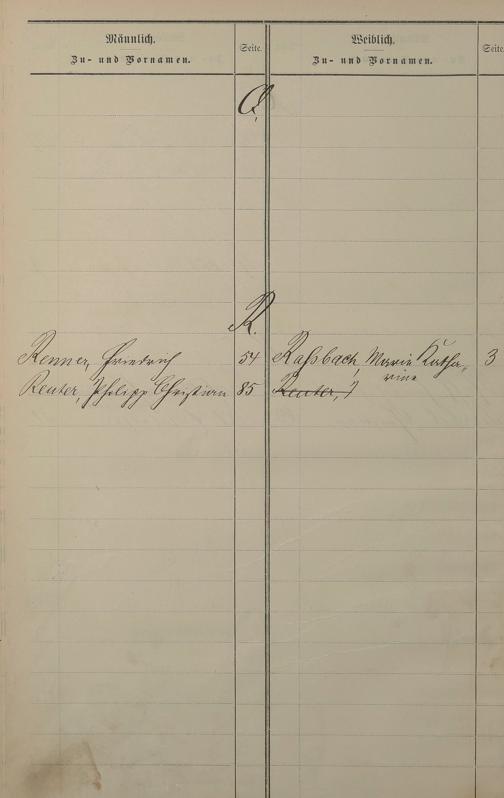 Männlich.
Zu- und Vornamen.
Seite.
Weiblich.
Zu- und Vornamen.
Seite.
Q.
R.
Renner, Friedrich 54
Raßbach, Marie Katha- 3
rine
Reuter, Philipp Christian 85
Reuter,